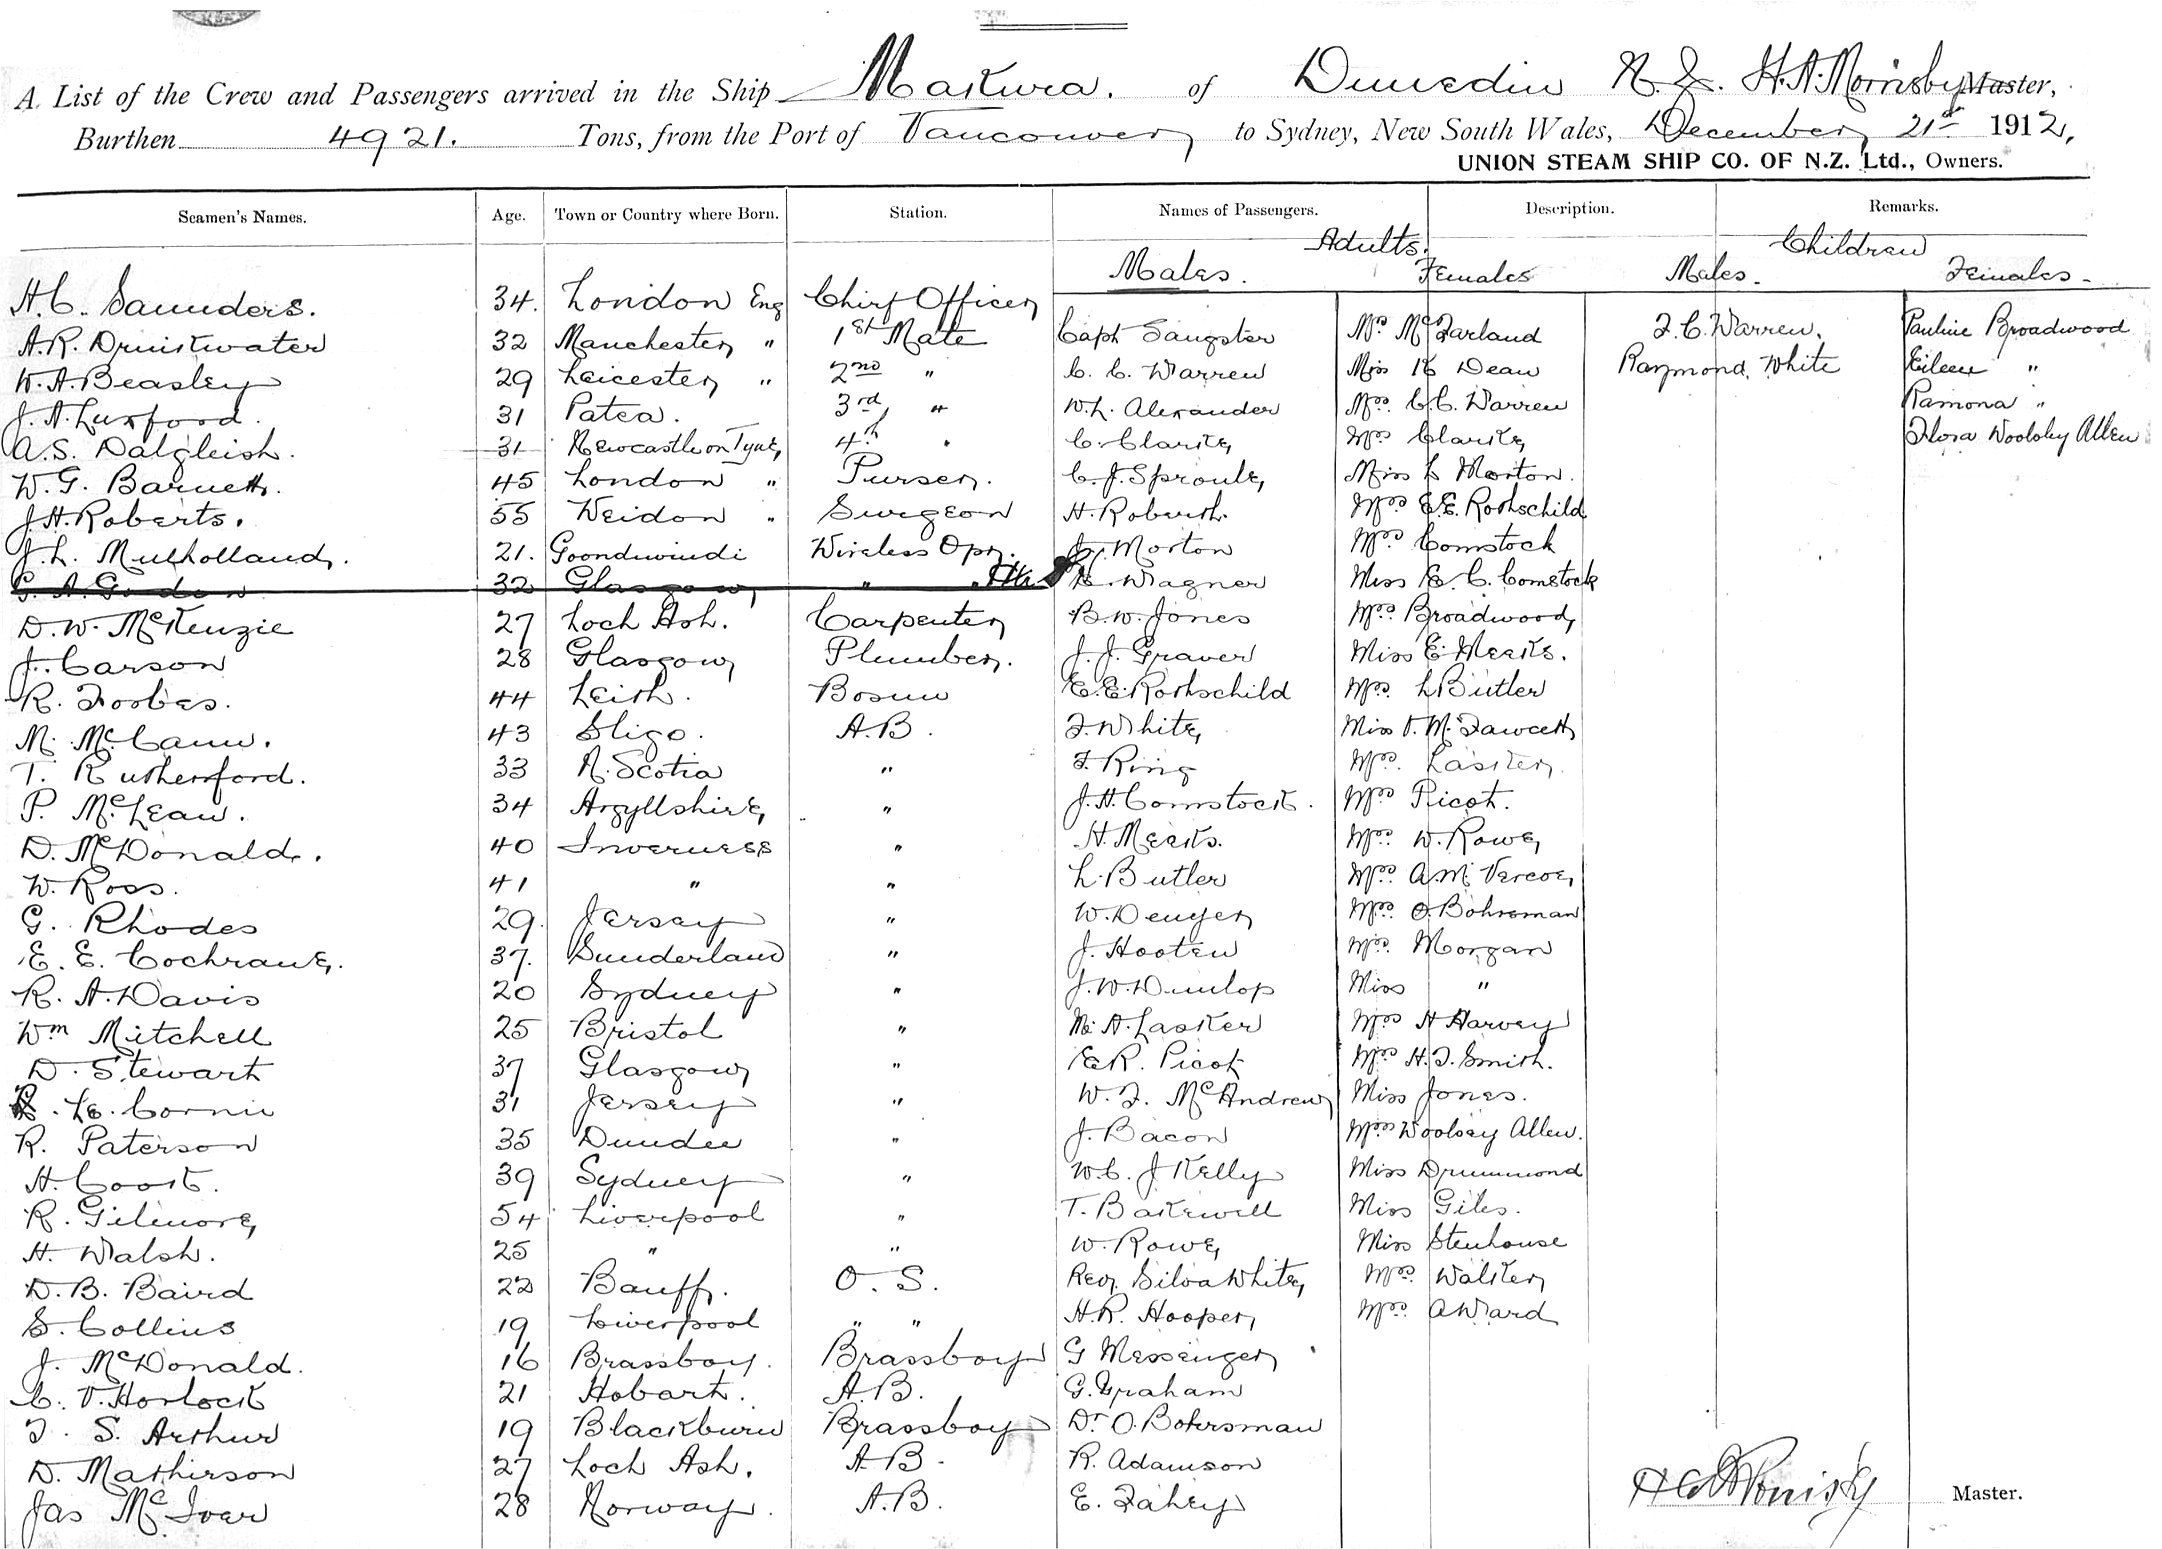 A List of the Crew and Passengers arrived in the Ship Makura. of Dunedin N.Z. H.A. Morrisby Master,
Burthen 4921. Tons, from the Port of Vancouver to Sydney, New South Wales, December 21st 1912,
UNION STEAM SHIP CO. OF N.Z. Ltd., Owners.
Seamen's Names. Age. Town or Country where Born. Station. Names of Passengers. Description. Remarks.
Adults. Children
Males. Females Males. Females.
H.C. Saunders. 34. London Eng Chief Officer
A.R. Drinkwater 32 Manchester " 1st Mate Capt Sangster Mrs McFarland F.C. Warren. Pauline Broadwood
W.A. Beasley 29 Leicester " 2nd " C. C. Warren Miss K Dean Raymond White Eileen "
J.A. Luxford. 31 Patea. 3rd " W.L. Alexander Mrs C.C. Warren Ramona "
A.S. Dalgleish. 31 Newcastle on Tyne, 4th " C. Clarke, Mrs Clarke, Flora Woolsey Allen
W.G. Barnett. 45 London " Purser. C.J. Sproule, Miss L Morton.
J.H. Roberts. 55 Weidon " Surgeon H. Roberts. Mrs E.E. Rothschild
J.L. Mulholland. 21. Goondiwindi Wireless Opr. J. Morton Mrs Comstock
G. A. Godon 32 Glasgow " Wagner Miss E. C. Comstock
D.W. McKenzie 27 Loch Ash. Carpenter B.W. Jones Mrs Broadwood,
J. Carson 28 Glasgow Plumber. J.J. Graver Miss E. Meeks.
R. Forbes. 44 Leith. Bosun E.E. Rothschild Mrs. L Butler
M. McCann. 43 Sligo. A.B. F. White, Miss V. M. Fawcett
T. Rutherford. 33 N. Scotia " F. King Mrs. Lasker
P. McLean. 34 Argyllshire, " J.H. Comstock. Mrs Picot.
D. McDonald. 40 Inverness " H. Meeks. Mrs W. Rowe,
W. Ross. 41 " " L. Butler Mrs A.M. Vercoe,
G. Rhodes 29. Jersey " W. Denyer Mrs O. Bohrsman
E. E. Cochrane. 37. Sunderland " J. Hooten Mrs. Morgan
R. A. Davis 20 Sydney " J.W. Dunlop Miss "
Wm Mitchell 25 Bristol " M. A. Lasker Mrs H Harvey
D. Stewart 37 Glasgow " E.R. Picot Mrs H. F. Smith.
Le. Cornu 31 Jersey " W. F. McAndrew Miss Jones.
R. Paterson 35 Dundee " J. Bacon Mrs Woolsey Allen.
H. Cook. 39 Sydney " W.C. J Kelly Miss Drummond
R. Gilmore, 54 Liverpool " T. Bakewell Miss Giles.
H. Walsh. 25 " " W. Rowe, Miss Stenhouse
D. B. Baird 22 Banff. O. S. Rev. Silva White, Mrs. Walker
S. Collins 19 Liverpool " " H.R. Hooper, Mrs. A Ward
J. McDonald. 16 Brassboy. Brassboy G Messenger
C. V. Horlock 21 Hobart. A.B. G. Graham
F. S. Arthur 19 Blackburn Brassboy Dr O. Bohrsman
D. Mathieson 27 Loch Ash. A B. R. Adamson
Jas McIver 28 Norway. A.B. E. Fahey
Master.